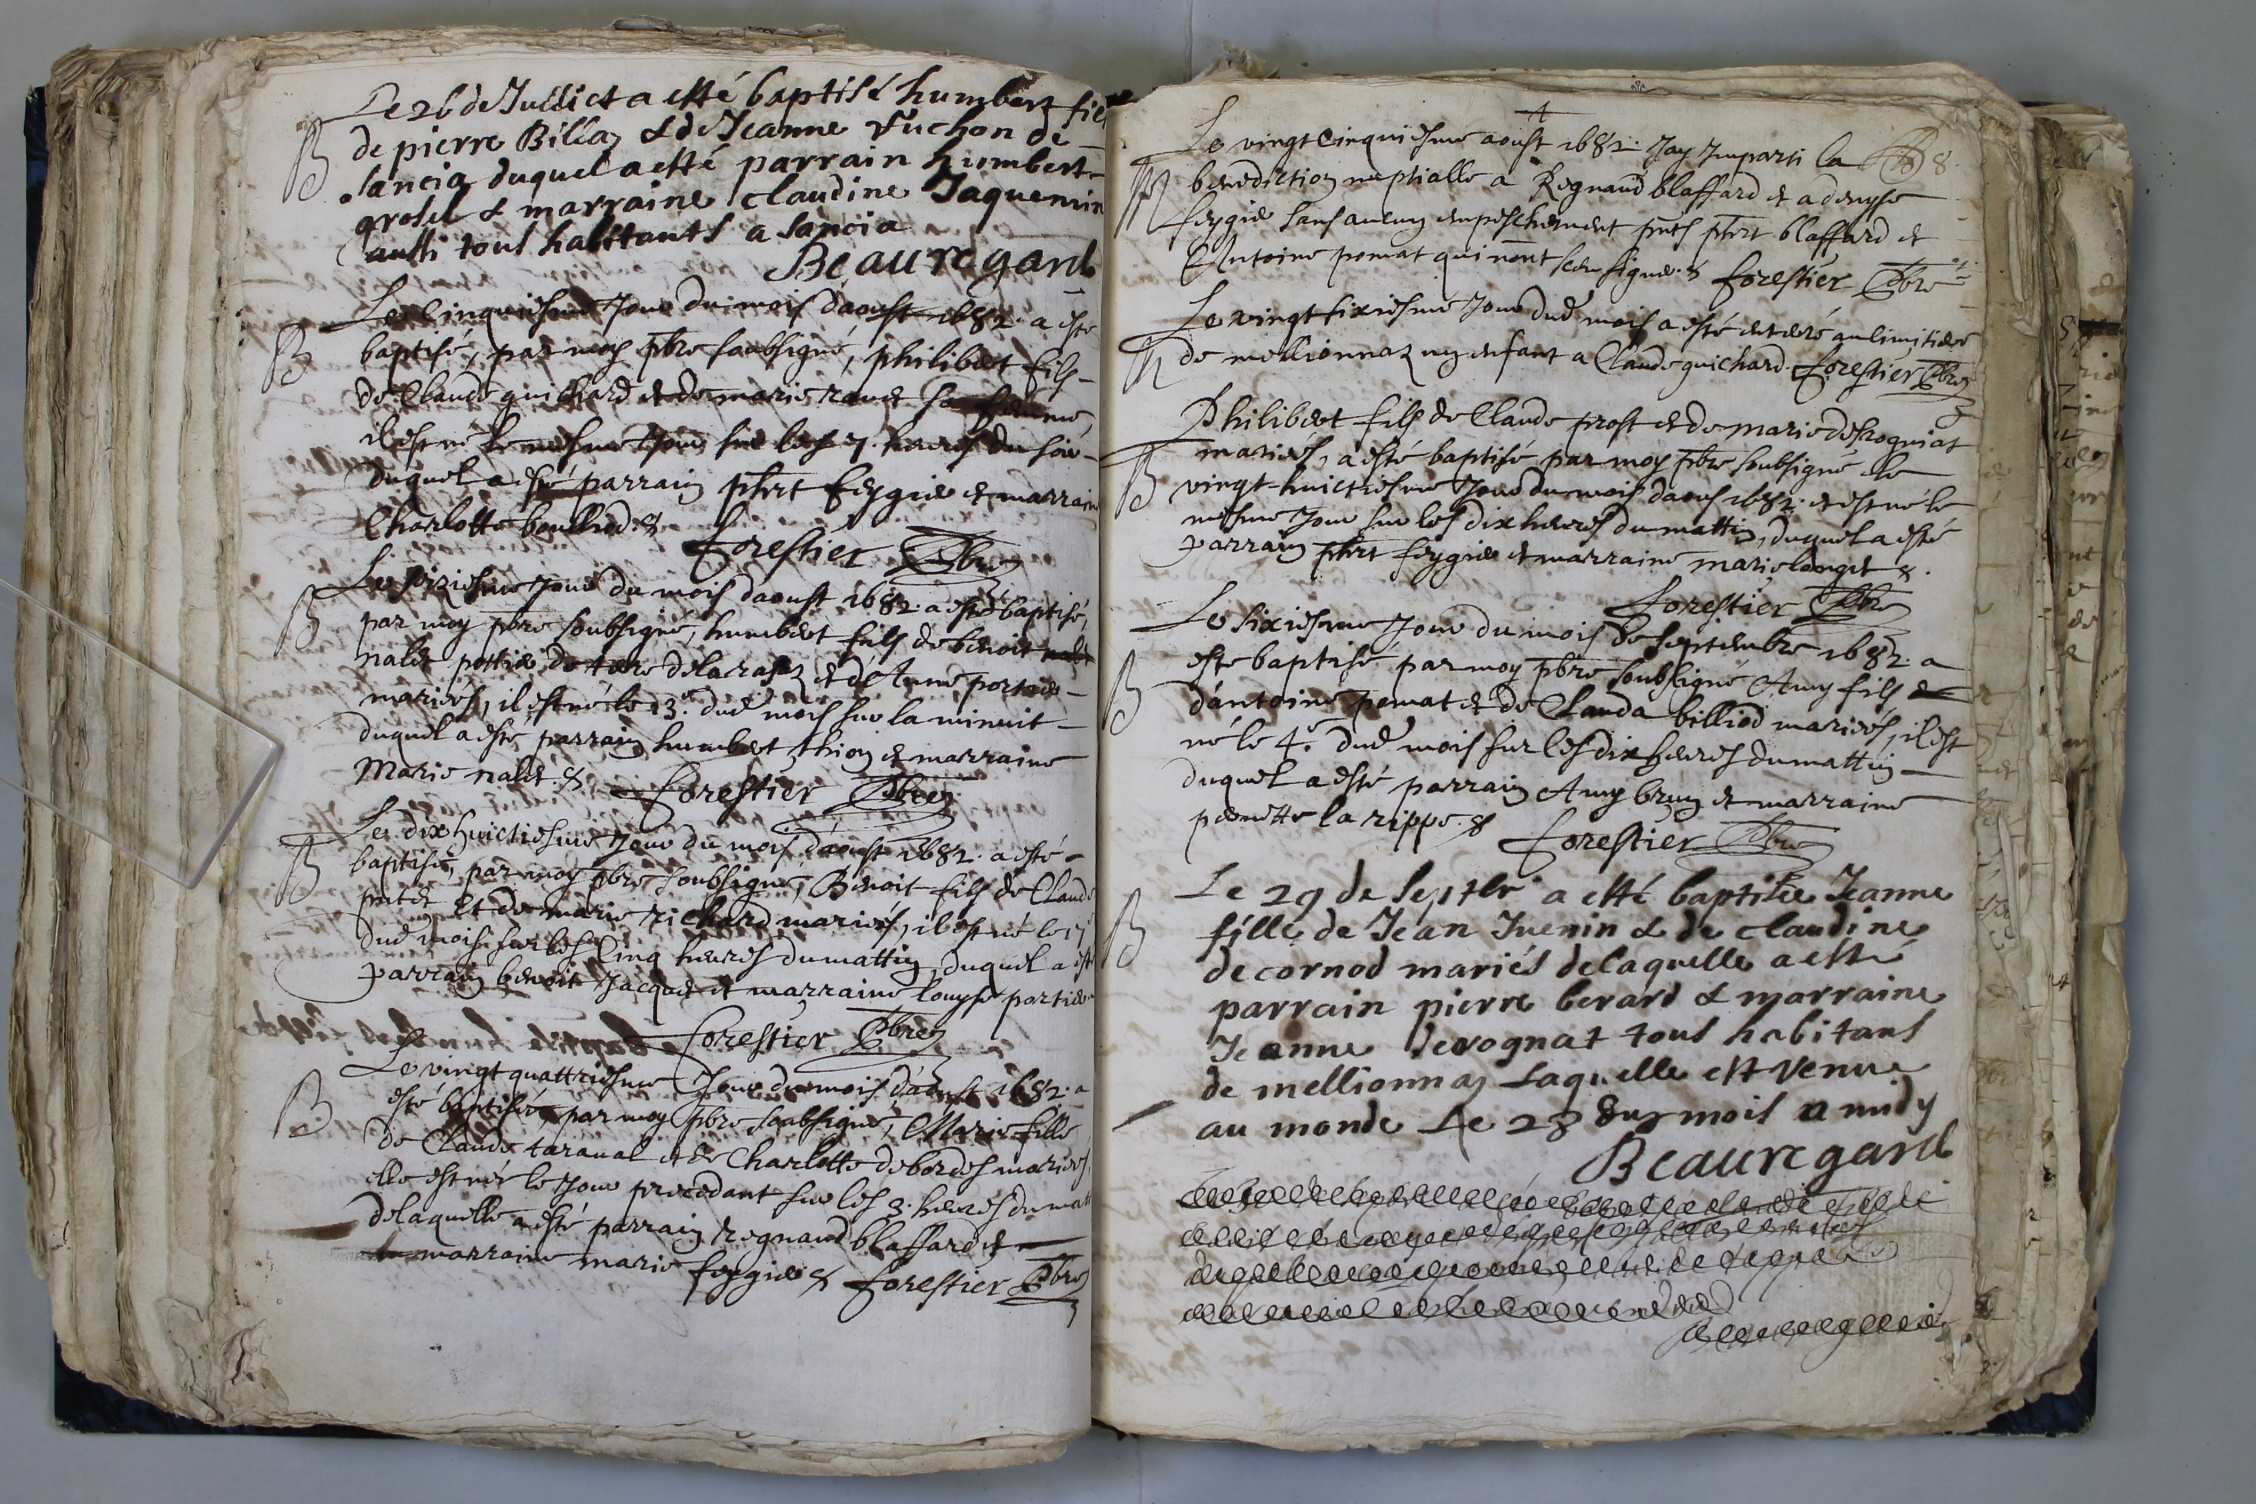 Le 26 de Juillict a esté baptisé humbert fils
B de pierre Billaz & de Jeanne Vuchon de
sancia duquel a esté parrain humbert
grosel & marraine claudine Jaquemin
aussi tous habitants a sancia
Beauregard
Le Cinquiesme Jour du mois daoust 1682. a esté
B baptisé, par moy pbre soubsigné, philibert fils
de Claude guichard et de marie ravet sa femme,
il est né le mesme Jour sur les 7. heures du soir
duquel a esté parrain phrt feygier et marraine
Charlotte boulliod. &
Forestier Pbre
Le sixiesme Jour du mois daoust 1682. a esté baptisé,
B par moy pbre soubsigné, humbert fils de benoit
nalet postier de terre delarasaz et de Anne portier
mariés, il est né le 13.e dud mois sur la minuit
duquel a esté parrain humbert thion et marraine
Marie nalet. & Forestier Pbre
Le dixhuictiesme Jour du mois daoust 1682. a esté
B baptisé, par moy pbre soubsigné, Benoit fils de Claude
putet et de marie richard mariés, il est né le 17
dud mois sur les Cinq heures du mattin, duquel a esté
parrain benoit Jacquet et marraine louyse portier
Forestier Pbre
Le vingt quattriesme Jour du mois daoust 1682. a
B esté baptisée, par moy pbre soubsigné, Marie fille
de Claude taraval et de Charlotte debordes mariés,
elle est née le Jour precedant sur les 3. heures du matt
delaquelle a esté parrain regnaud blaffard et
marraine marie feygier & Forestier Pbre
Le vingt Cinquiesme aoust 1682. Jay Imparti la 8
M benediction nuptialle a Regnaud blaffard et a denyse
feygier sans aucun empeschement pnts phrt blaffard et
Antoine pomat qui nont sceu signer. & Forestier Pbre
Le vingt sixiesme Jour dud mois a esté enterré au cimitiere
M de mellionnaz un enfant a Claude guichard. Forestier Pbre
Philibert fils de Claude prost et de marie desrogniat
mariés, a esté baptisé par moy pbre soubsigné le
B vingt-huictiesme Jour du mois daous 1682. et est né le
mesme Jour sur les dix heures du mattin, duquel a esté
parrain phrt feygier et marraine marie longet &.
Forestier Pbre
Le sixiesme Jour du mois de septembre 1682. a
B esté baptisé par moy pbre soubsigné Amy fils
dantoine pomat et de Clauda billiod mariés, il est
né le 4.e dud mois sur les dix heures du mattin
duquel a esté parrain Amy brun et marraine
pernette larippe. &
Forestier Pbre
B Le 29 de septbr a esté baptisée Jeanne
fille de Jean Juenin & de claudine
de cornod mariés delaquelle a esté
parrain pierre berard & marraine
Jeanne derognat tous habitans
de mellionnaz Laquelle est venue
au monde Le 23 du mois a midy
Beauregard